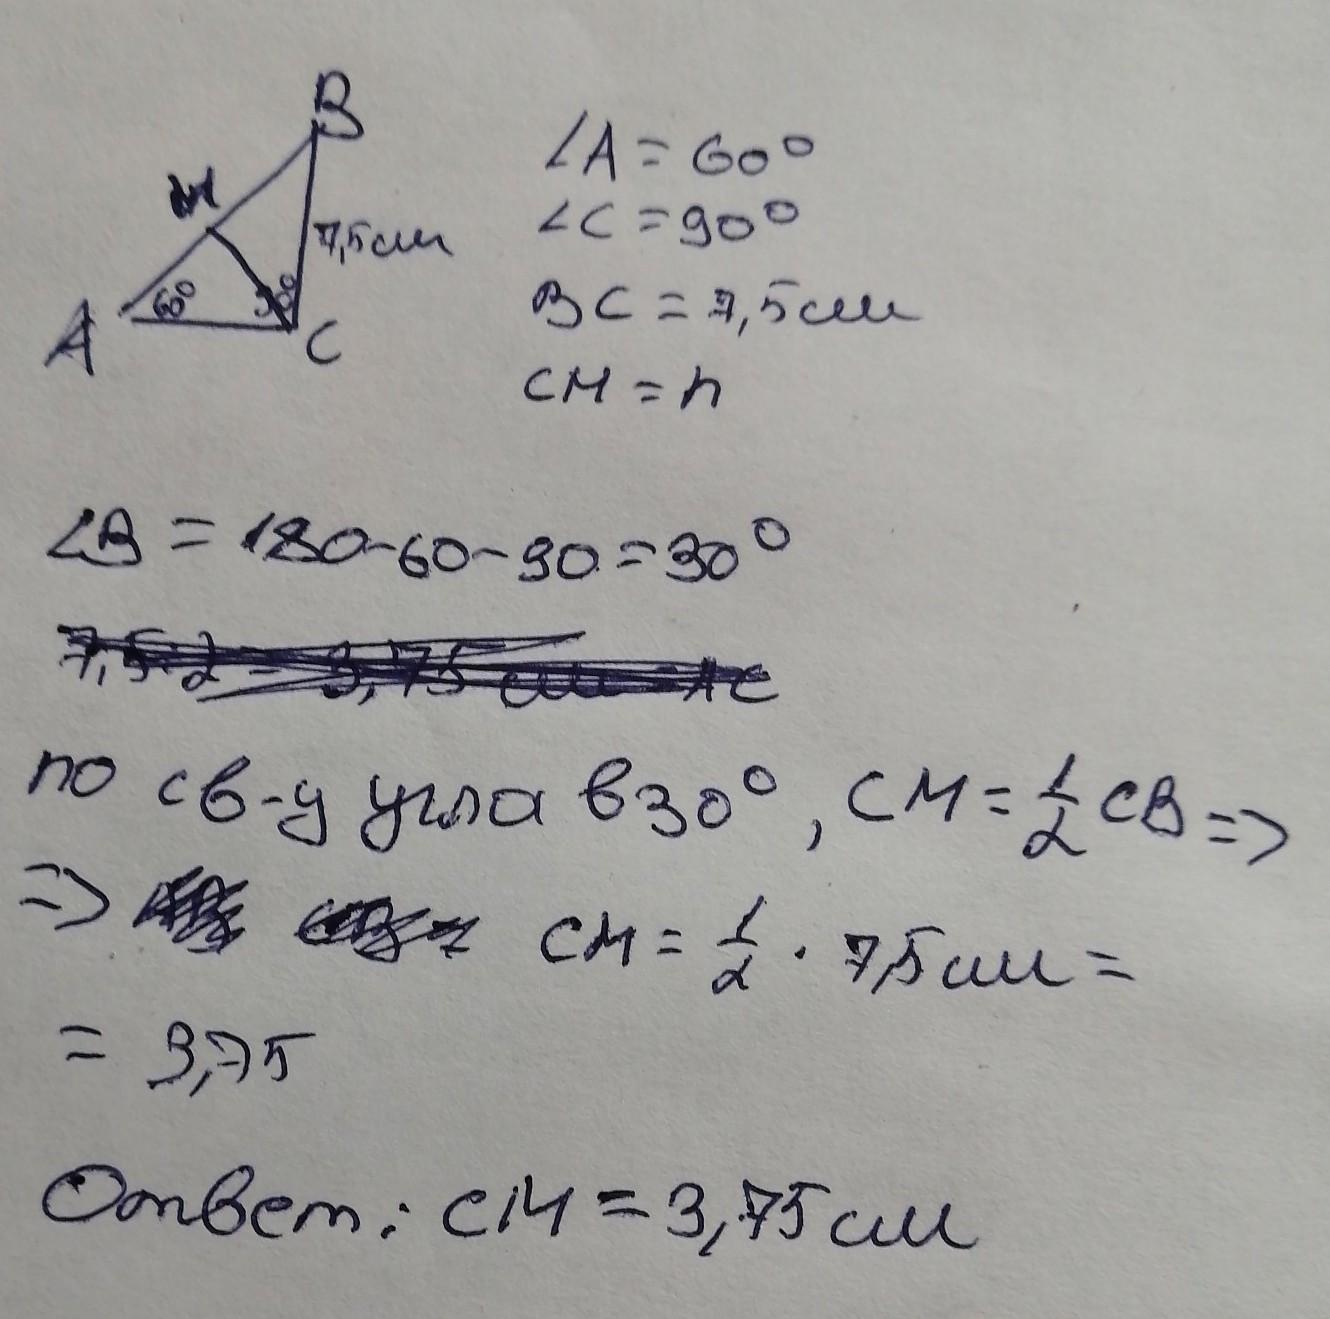 B
M
7,5см
60°
90°
A
C
∠A = 60°
∠C = 90°
BC = 7,5см
CM = h
∠B = 180-60-90=30°
7,5:2 = 3,75 см = AC
по св-у угла в 30°, CM = 1/2 CB =>
=> CM = 1/2 · 7,5см =
= 3,75
Ответ: CM = 3,75см